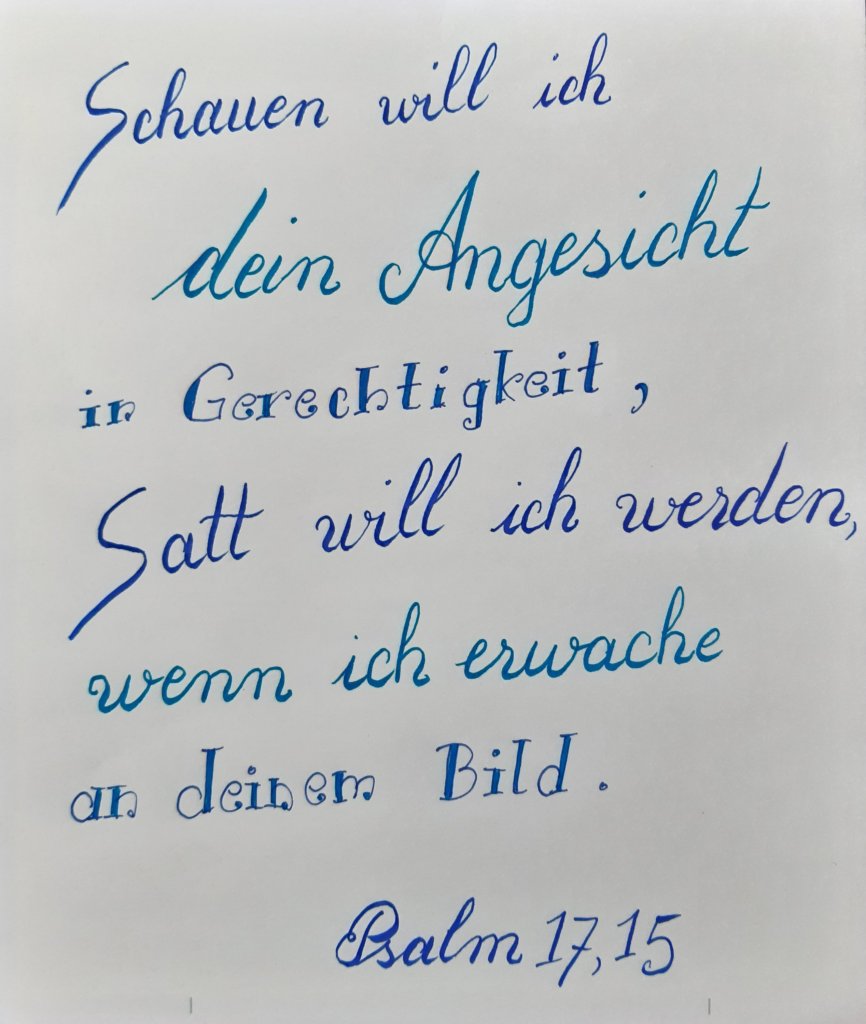 Schauen will ich
dein Angesicht
in Gerechtigkeit,
Satt will ich werden,
wenn ich erwache
an deinem Bild.
Psalm 17,15